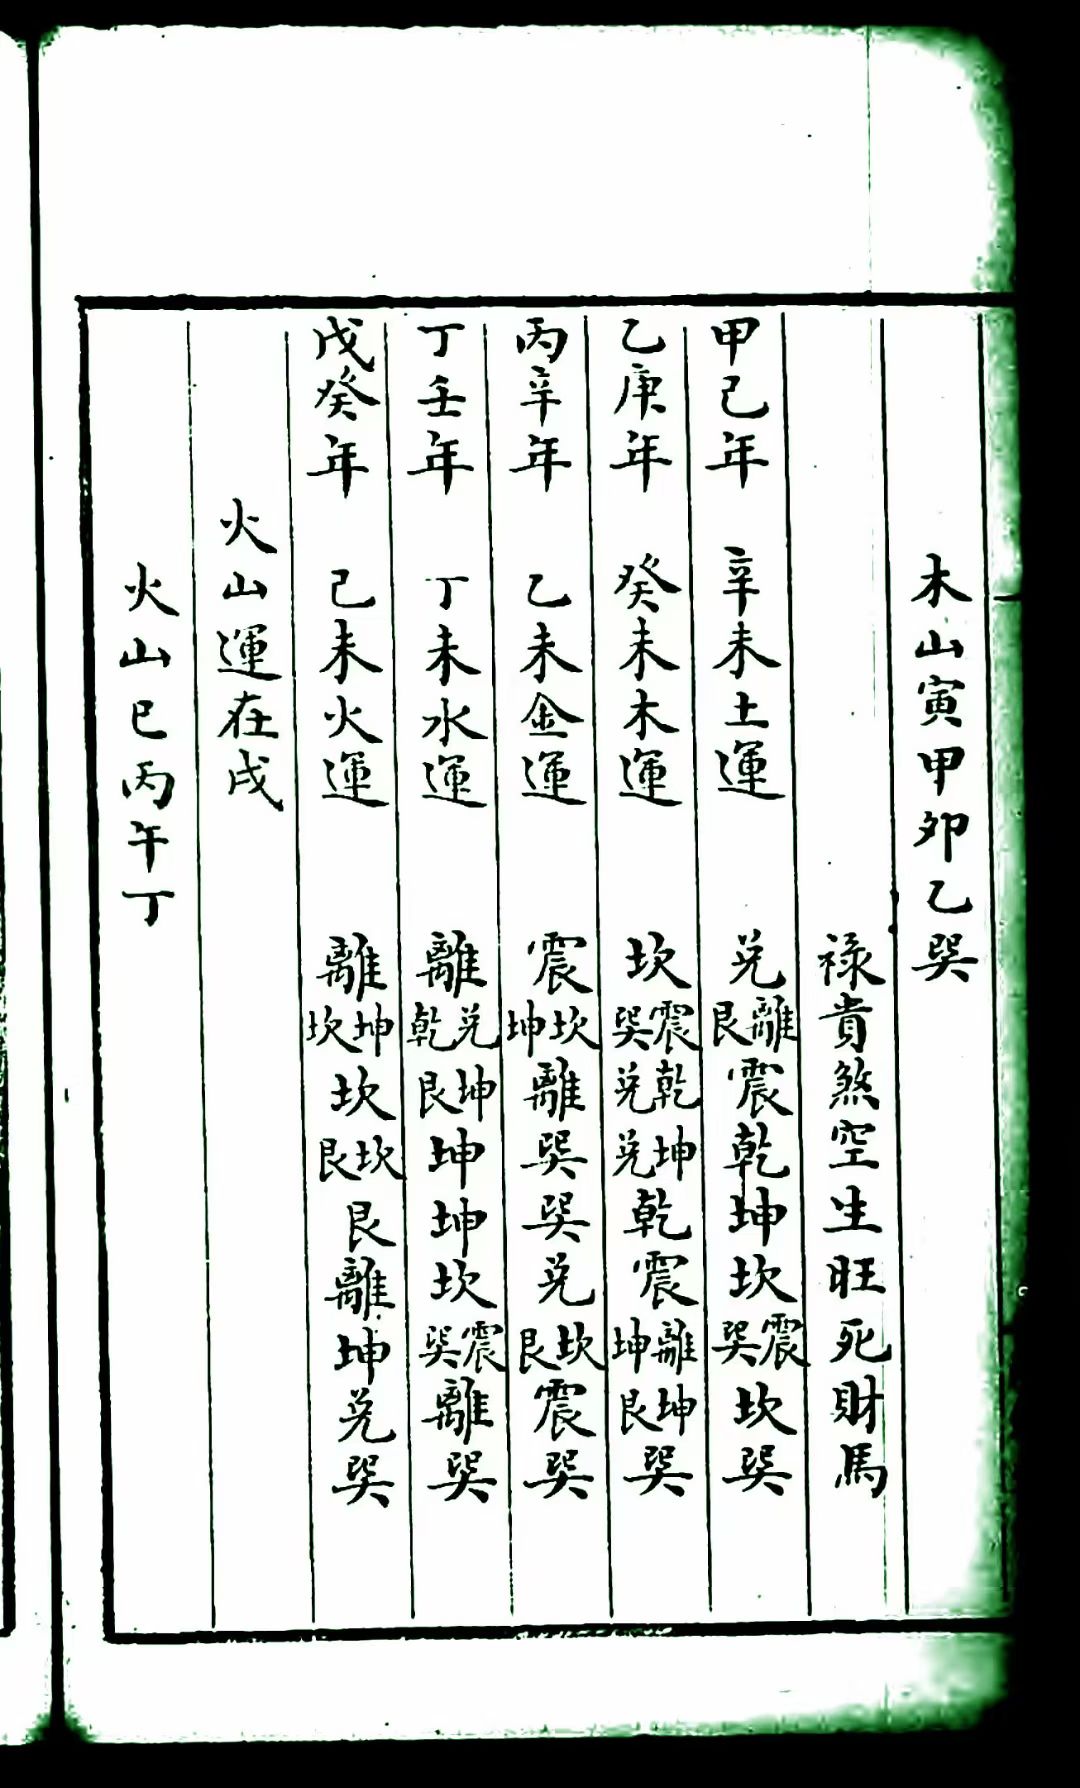 木山寅甲卯乙巽
祿貴煞空生旺死財馬
甲己年 辛未土運 兑離艮震乾坤坎震巽坎巽
乙庚年 癸未木運 坎震巽乾兑坤兑乾震離坤坤艮巽
丙辛年 乙未金運 震坎坤離巽巽兑坎艮震巽
丁壬年 丁未水運 離兑乾坤艮坤坤坎震巽離巽
戊癸年 己未火運 離坤坎坎坎艮艮離坤兑巽
火山運在戌
火山巳丙午丁